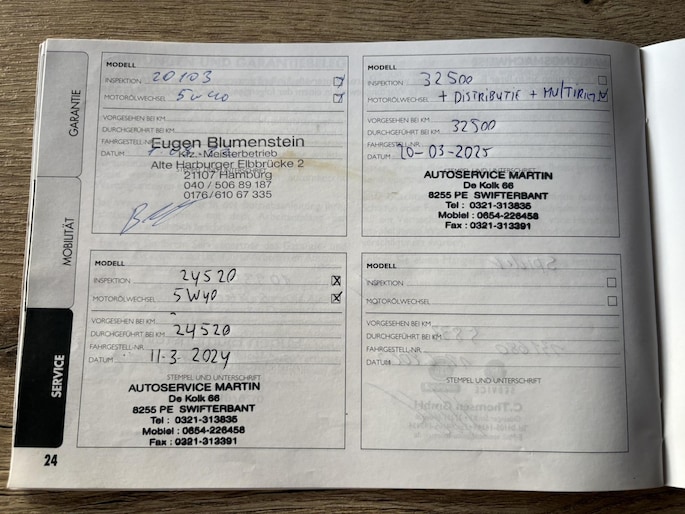 GARANTIE
MOBILITÄT
SERVICE
MODELL
INSPEKTION 20103
MOTORÖLWECHSEL 5W40
VORGESEHEN BEI KM
DURCHGEFÜHRT BEI KM
FAHRGESTELL-NR.
DATUM
Eugen Blumenstein
Kfz.-Meisterbetrieb
Alte Harburger Elbbrücke 2
21107 Hamburg
040 / 506 89 187
0176/610 67 335
MODELL
INSPEKTION 32500
MOTORÖLWECHSEL + DISTRIBUTIE + MULTIRIEM
VORGESEHEN BEI KM
DURCHGEFÜHRT BEI KM 32500
FAHRGESTELL-NR.
DATUM 20-03-2025
AUTOSERVICE MARTIN
De Kolk 66
8255 PE SWIFTERBANT
Tel : 0321-313835
Mobiel : 0654-226458
Fax : 0321-313391
MODELL
INSPEKTION 24520 X
MOTORÖLWECHSEL 5W40 X
VORGESEHEN BEI KM
DURCHGEFÜHRT BEI KM 24520
FAHRGESTELL-NR.
DATUM 11-3-2024
STEMPEL UND UNTERSCHRIFT
AUTOSERVICE MARTIN
De Kolk 66
8255 PE SWIFTERBANT
Tel : 0321-313835
Mobiel : 0654-226458
Fax : 0321-313391
MODELL
INSPEKTION
MOTORÖLWECHSEL
VORGESEHEN BEI KM
DURCHGEFÜHRT BEI KM
FAHRGESTELL-NR.
DATUM
STEMPEL UND UNTERSCHRIFT
24